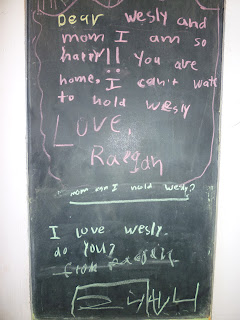 Dear wesly and
mom I am so
happy!! You are
home. I can't wait
to hold Wesly
LOVE,
Raegan
mom can I hold wesly?
I love wesly.
do you?
from